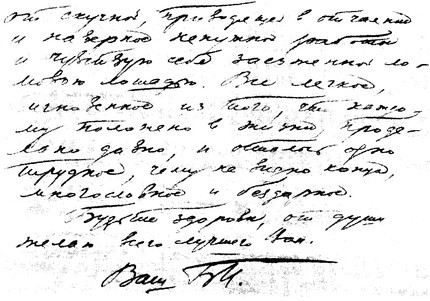 от скучной, приводящей в отчаяние
и наверное ненужной работы
и чувствую себя заезженной ло-
мовою лошадью. Все легкое,
мгновенное из того, что каждо-
му положено в жизни, проде-
лано давно, и осталось одно
трудное, чему не видно конца,
многословное и бездарное.
Будьте здоровы, от души
желаю всего лучшего Вам.
Ваш